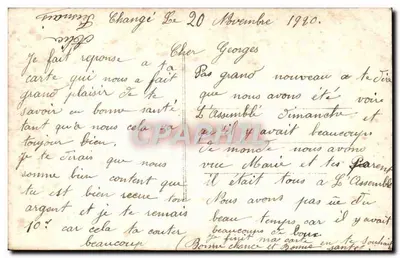 Changé Le 20 Novembre 1920.
Cher Georges
Je fait reponse a ta
carte qui nous a fait
grand plaisir de te
savoir en bonne santé
tant qu'a nous cela
toujour bien.
Je te dirais que nous
somme bien content que
tu est bien recue ton
argent et je te remais
10f car cela ta couter
beaucoup
Pas grand nouveau a te dire
que nous avons été voire
L'Assemblé dimanche et
qu'il y avait beaucoup
de monde nous avons
vue Marie et tes Parent
il était tous a L'Assemblé
Nous avons pas üe du
beau temps car il y avait
beaucoups de boux
Je finit ma carte en te souhait
(Bonne chance et Bonne santé)